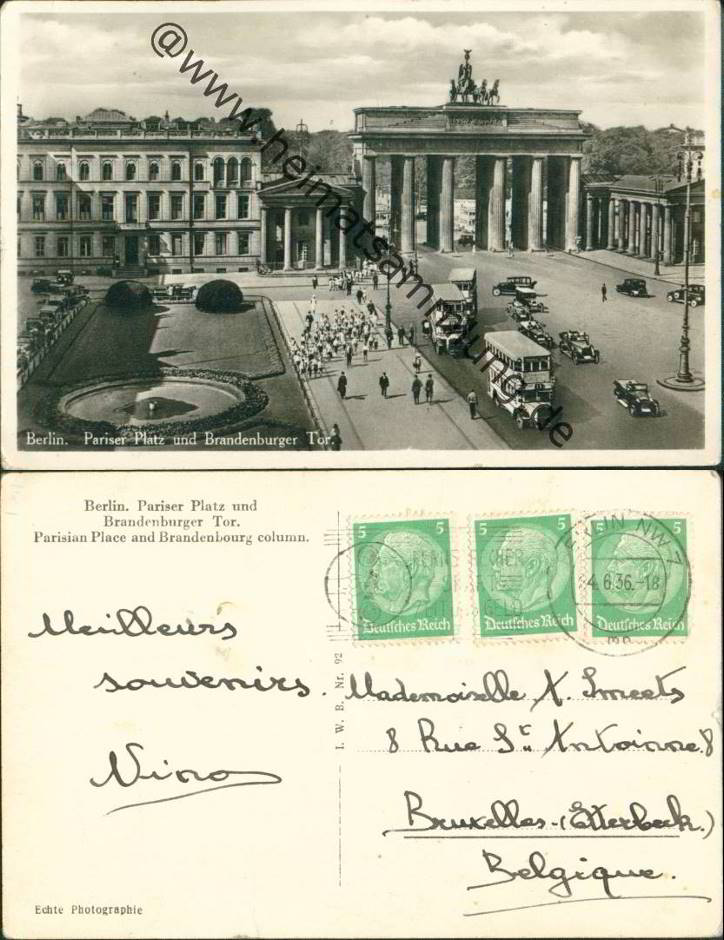 @www.heimatsammlung.de
Berlin. Pariser Platz und Brandenburger Tor.
Berlin. Pariser Platz und
Brandenburger Tor.
Parisian Place and Brandenbourg column.
5 5 5 5 5 5
BERLIN NW 7
4.6.36.-18
Deutsches Reich Deutsches Reich Deutsches Reich
Meilleurs
souvenirs.
Nino
I. W. B. Nr. 92
Mademoiselle A. Smeets
8 Rue St Antoinne 8
Bruxelles-(Etterbeek.)
Belgique.
Echte Photographie